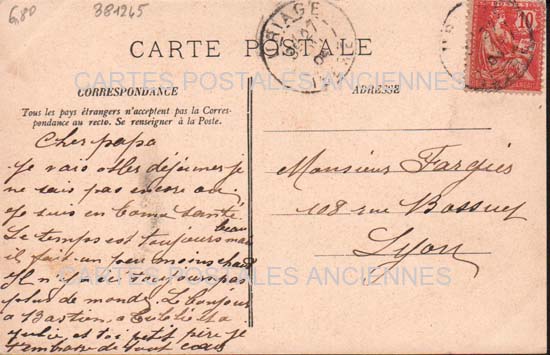 6,80
381245
URIAGE
27
CARTE POSTALE
POSTES
10
CARTES POSTALES ANCIENNES
CORRESPONDANCE
ADRESSE
Tous les pays étrangers n'acceptent pas la Corres-
pondance au recto. Se renseigner à la Poste.
Cher papa
Je vais aller déjeuner je
ne sais pas encore où
Je suis en bonne santé
Le temps est toujours beau mais
il fait un peu moins chaud
Il n'y a toujours pas
plus de monde. Le bonjour
à Bastien, à
et toi petit père je
t'embrasse de tout cœur
Monsieur Fargies
108 rue Bossuet
Lyon
CARTES POSTALES ANCIENNES